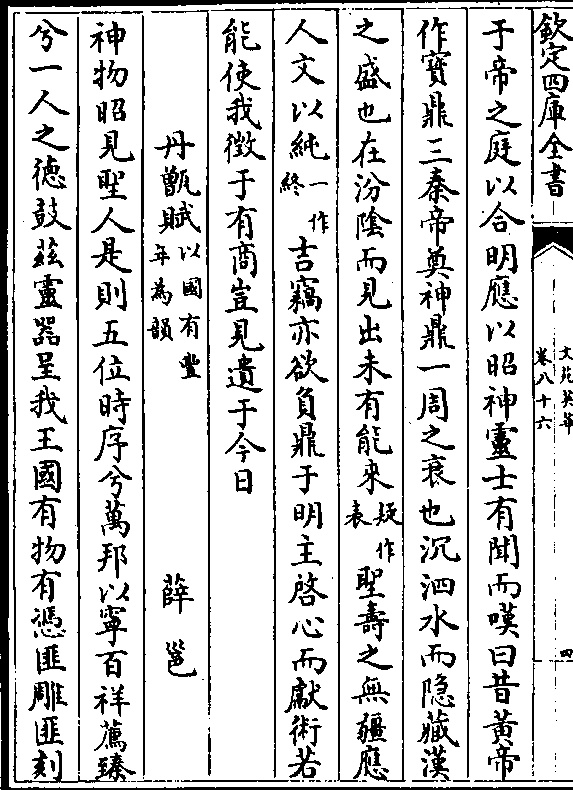 欽定四庫全書
文苑英華
卷八十六
四
于帝之庭以合明應以昭神靈士有聞而嘆曰昔黃帝
作寳鼎三秦帝奠神鼎一周之衰也沉泗水而隐藏漢
之盛也在汾陰而見出未有能來疑作表聖壽之無疆應
人文以純一作終吉竊亦欲負鼎于明主啓心而獻術若
能使我徵于有商豈見遺于今日
丹甑賦以國有豐年為韻 薛邕
神物昭見聖人是則五位時序兮萬邦以寧百祥薦臻
兮一人之德鼓茲靈器呈我王國有物有憑匪雕匪刻